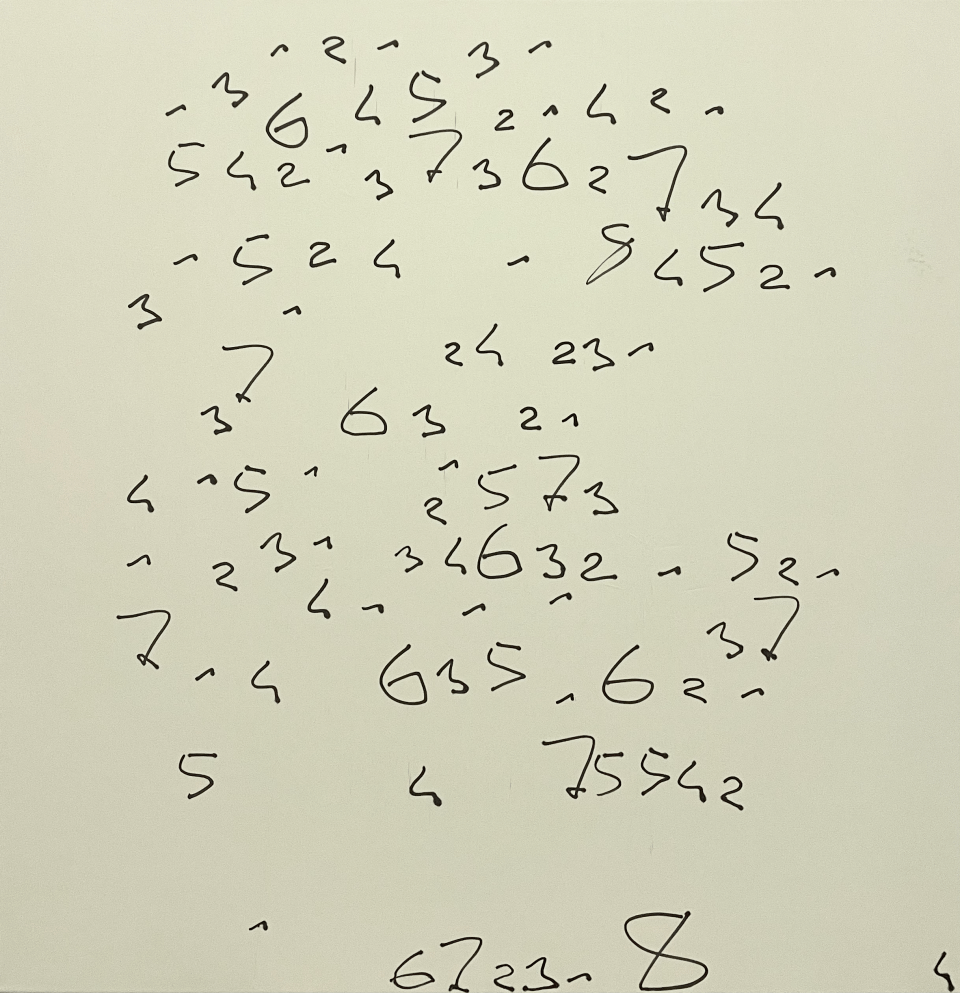 1 2 1 3 1
1 3 6 4 5 2 1 4 2 1
5 4 2 1 3 7 3 6 2 7 3 4
1 5 2 4 1 8 4 5 2 1
3 1
7 2 4 2 3 1
3 6 3 2 1
4 1 5 1 2 1 5 7 3
1 2 3 1 3 4 6 3 2 1 5 2 1
7 4 1 1 1 3 7
1 4 6 3 5 1 6 2 1
5 4 7 5 5 4 2
1
6 7 2 3 1 8 4